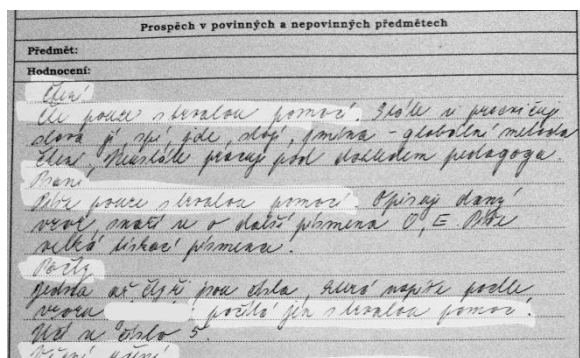 Prospěch v povinných a nepovinných předmětech
Předmět:
Hodnocení:
Čtení
Čte pouze s trvalou pomocí. Stále si procvičuje
slova já, spí, jde, stojí, jména - globální metoda
čtení. Neustále pracuje pod dohledem pedagoga.
Psaní
Píše pouze s trvalou pomocí. Opisuje daný
vzor, snaží se o další písmena O, E. Píše
velká tiskací písmena.
Počty
jedna až čtyři jsou čísla, která napíše podle
vzoru počítá jen s trvalou pomocí.
Učí se číslo 5.